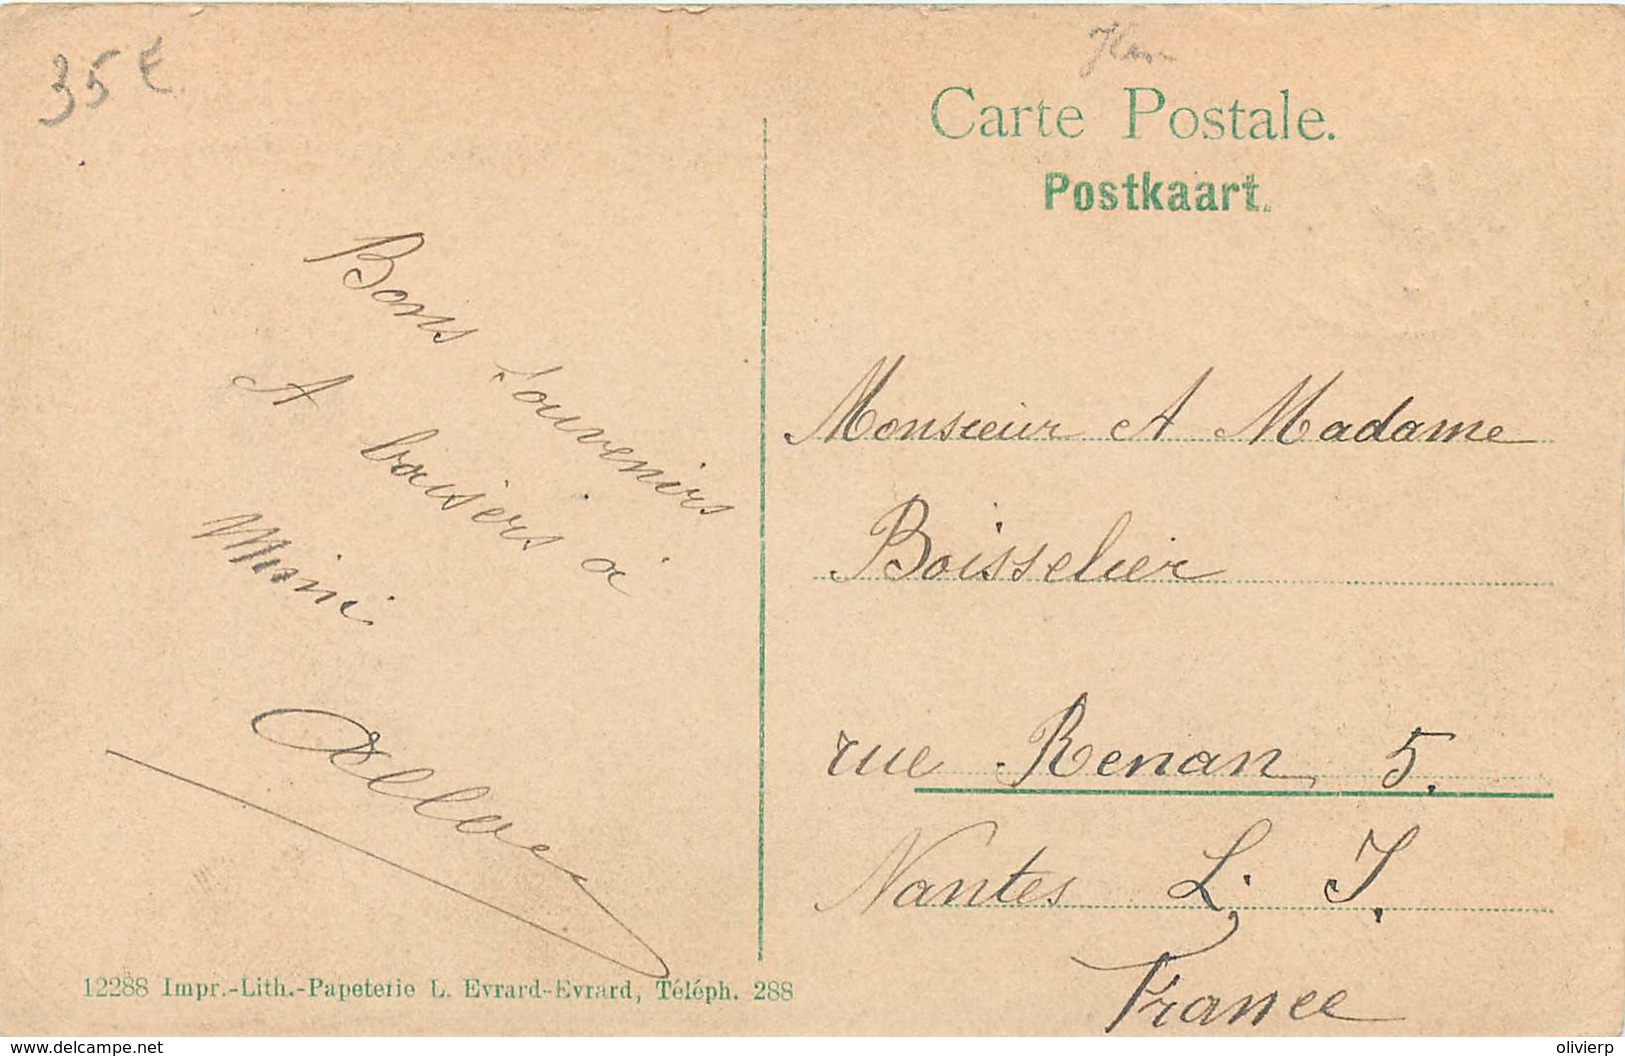 35 €
Carte Postale.
Postkaart.
Bons souvenirs
A baisers à
Mimi
Monsieur A Madame
Boisselier
rue Renan 5.
Nantes L. I.
France
12288 Impr.-Lith.-Papeterie L. Evrard-Evrard, Téléph. 288
www.delcampe.net
olivierp